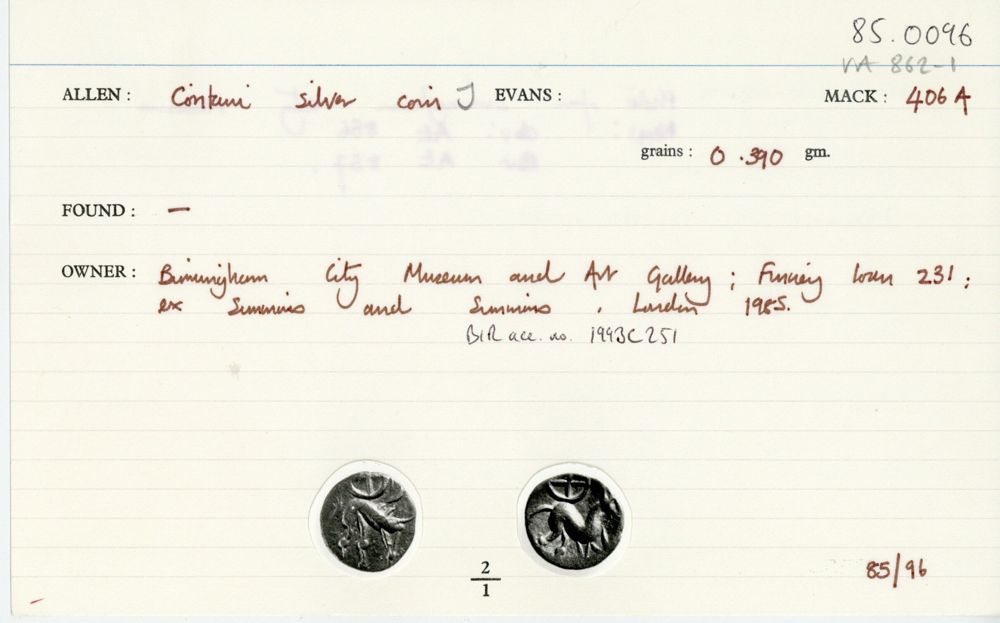 85.0096
VA 862-1
ALLEN : Coritani silver coin J EVANS : MACK : 406A
grains : 0.390 gm.
FOUND : —
OWNER : Birmingham City Museum and Art Gallery ; Finney loan 231 ;
ex Simmons and Simmons, London 1985.
BIR acc. no. 1993C251
2
1
85/96